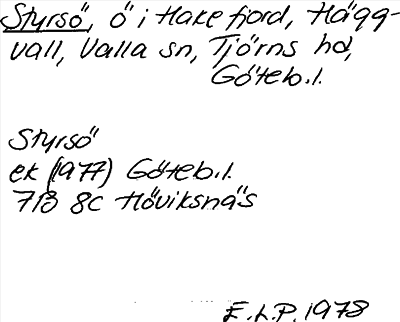 Styrsö, ö i Hake fjord, Hägg-
vall, Valla sn, Tjörns hd,
Göteb.l.
Styrsö
ek (1977) Göteb.l.
7B 8c Höviksnäs
E.L.P. 1978